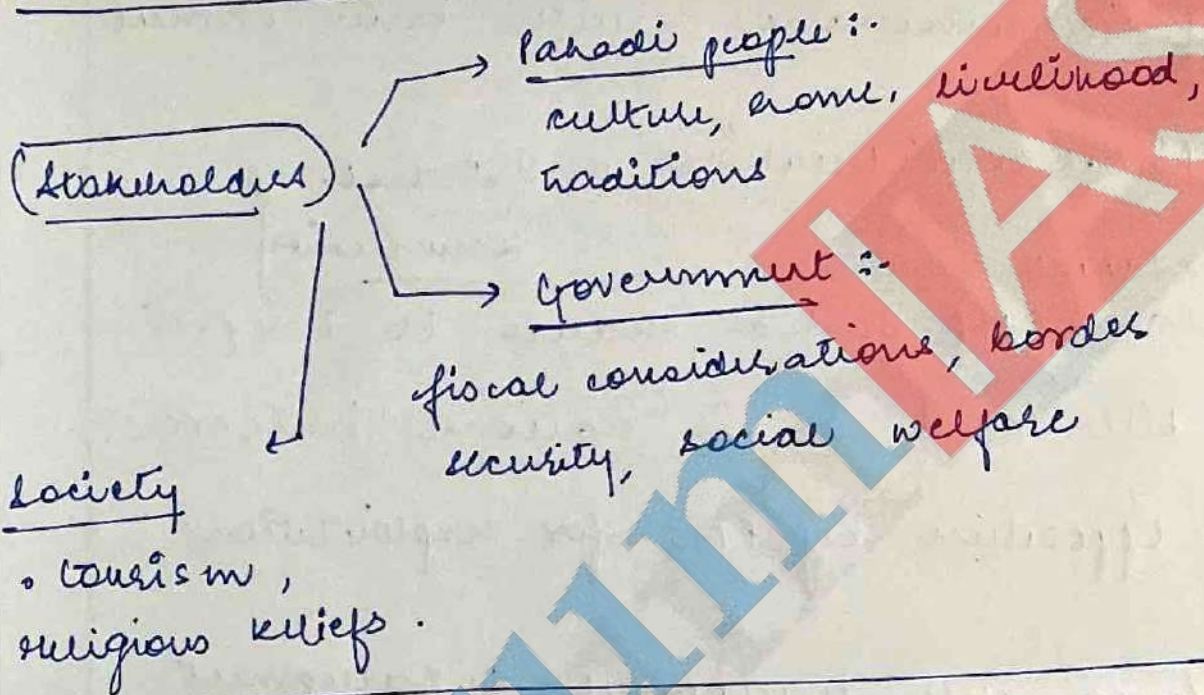 Pahadi people :-
culture, home, livelihood,
traditions
Stakeholders
Government :-
fiscal considerations, border
security, social welfare
Society
• tourism,
religious beliefs.
IAS
um